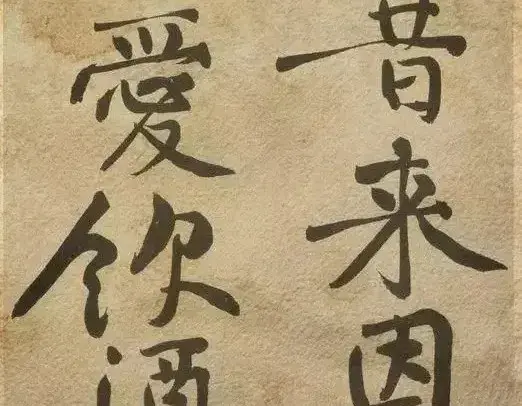 昔来因
愛飲酒